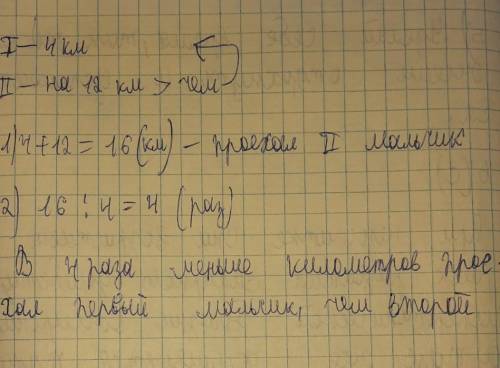 I – 4 км
II – на 12 км > чем
1) 4 + 12 = 16 (км) – проехал II мальчик
2) 16 : 4 = 4 (раз)
В 4 раза меньше километров прое-
хал первый мальчик, чем второй